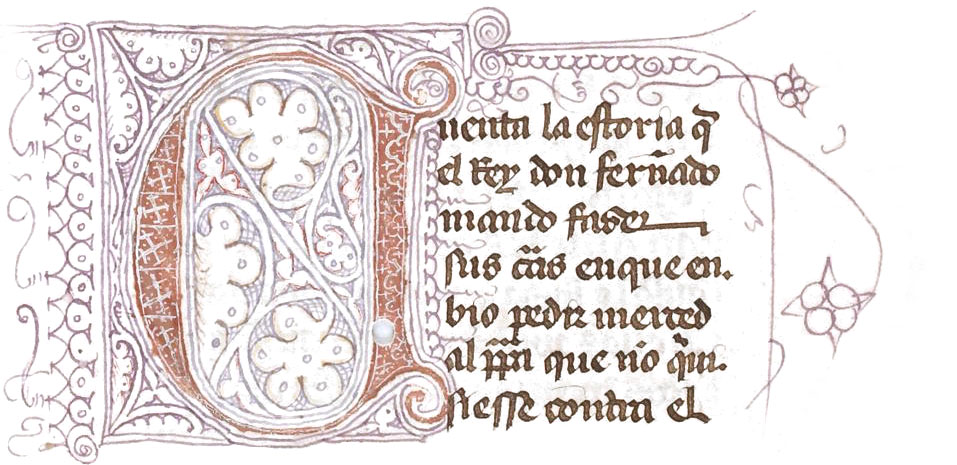 Cuenta la estoria q̄
el Rey don ferñado
mando faser
sus c̄ras en que en.
bio pedir merced
al p̄p̄a que nō q̄ui.
siesse contra el